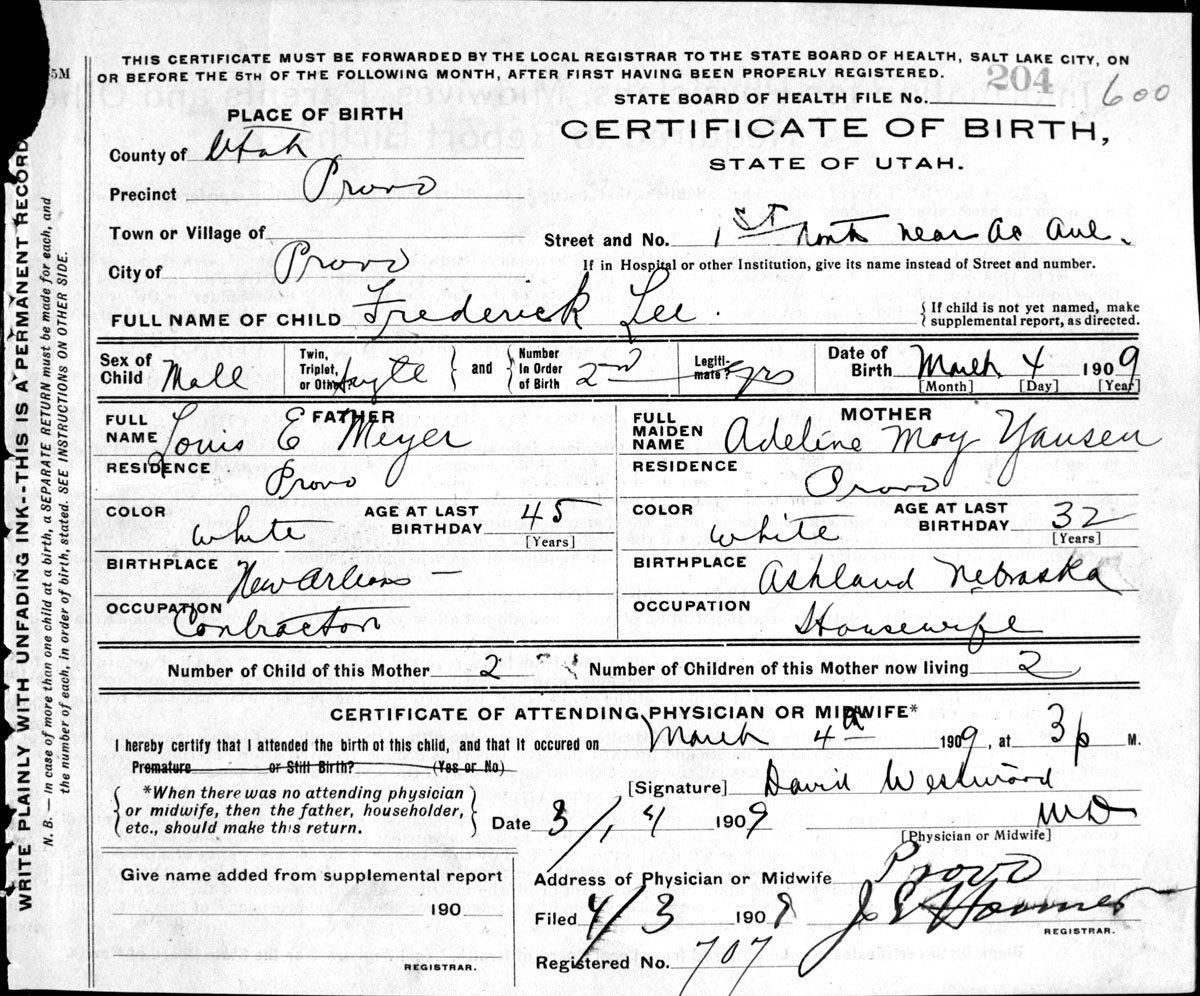 THIS CERTIFICATE MUST BE FORWARDED BY THE LOCAL REGISTRAR TO THE STATE BOARD OF HEALTH, SALT LAKE CITY, ON
OR BEFORE THE 5TH OF THE FOLLOWING MONTH, AFTER FIRST HAVING BEEN PROPERLY REGISTERED.
5M
204
600
STATE BOARD OF HEALTH FILE No.
PLACE OF BIRTH
CERTIFICATE OF BIRTH,
STATE OF UTAH.
County of Utah
Precinct Provo
Town or Village of
Street and No. 1ST North near Ac Ave.
City of Provo
If in Hospital or other Institution, give its name instead of Street and number.
FULL NAME OF CHILD Frederick Lee.
{ If child is not yet named, make
supplemental report, as directed.
Sex of Child Mall
Twin, Triplet, or Other } and { Number In Order of Birth 2nd
Legiti-mate? yrs
Date of Birth March 4 1909
[Month] [Day] [Year]
FATHER
FULL NAME Louis E Meyer
MOTHER
FULL MAIDEN NAME Adeline May Yansen
RESIDENCE Provo
RESIDENCE Provo
COLOR white AGE AT LAST BIRTHDAY 45 [Years]
COLOR white AGE AT LAST BIRTHDAY 32 [Years]
BIRTHPLACE New Orleans —
BIRTHPLACE Ashland Nebraska
OCCUPATION Contractor
OCCUPATION Housewife
Number of Child of this Mother 2 Number of Children of this Mother now living 2
CERTIFICATE OF ATTENDING PHYSICIAN OR MIDWIFE*
I hereby certify that I attended the birth of this child, and that it occured on March 4th 1909, at 3p M.
Premature or Still Birth? (Yes or No)
{ *When there was no attending physician
or midwife, then the father, householder,
etc., should make this return. }
[Signature] David Westwood
Date 3/4 1909 MD
[Physician or Midwife]
Give name added from supplemental report
190
REGISTRAR.
Address of Physician or Midwife Provo
Filed 4/3 1909
REGISTRAR.
Registered No. 707
WRITE PLAINLY WITH UNFADING INK--THIS IS A PERMANENT RECORD
N. B. — In case of more than one child at a birth, a SEPARATE RETURN must be made for each, and
the number of each, in order of birth, stated. SEE INSTRUCTIONS ON OTHER SIDE.